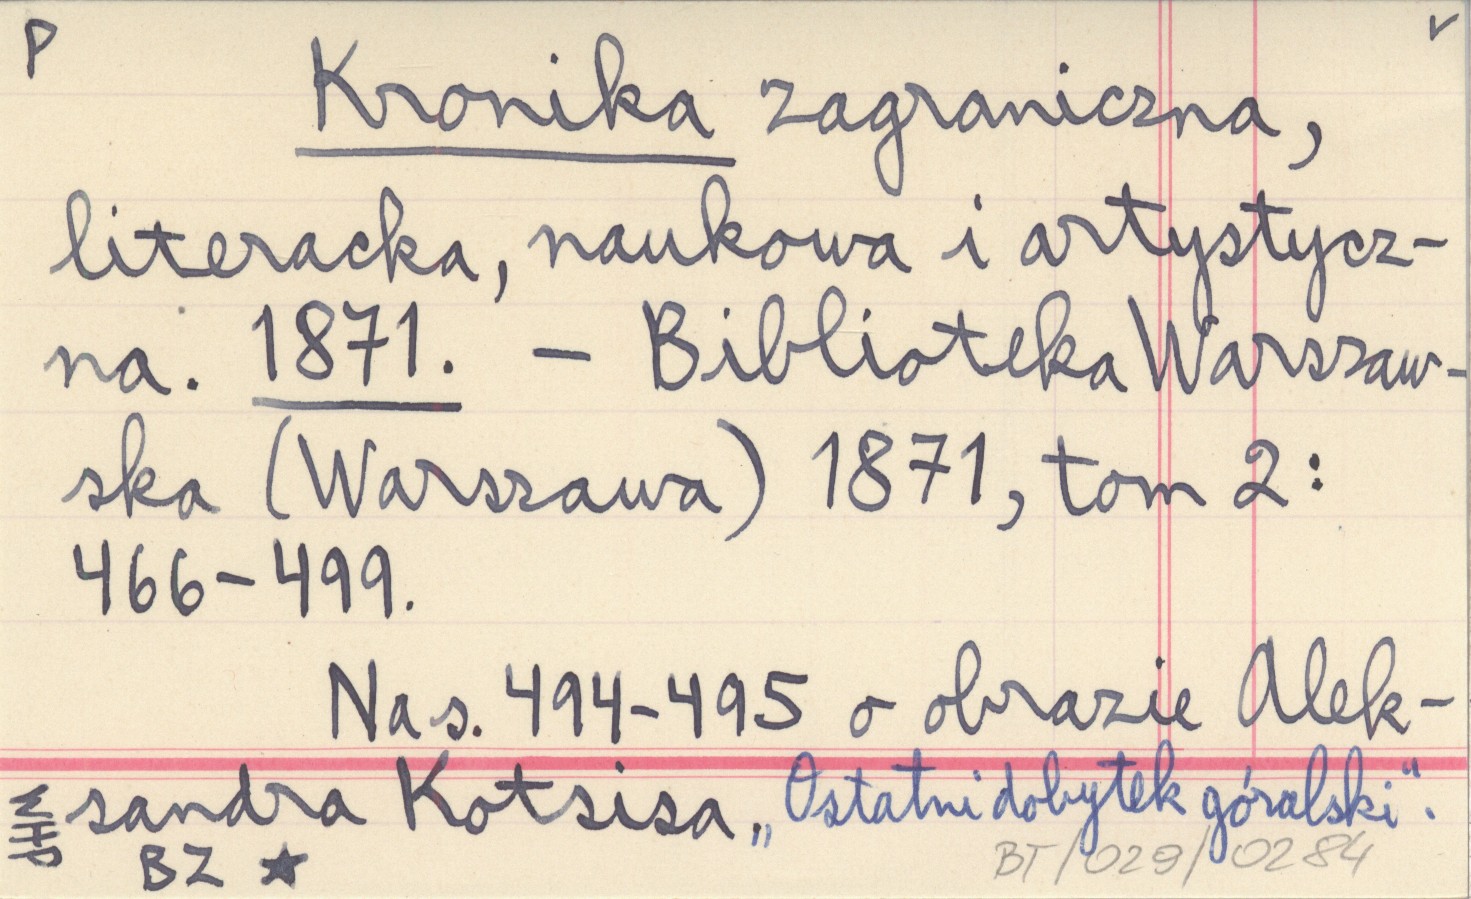 P
Kronika zagraniczna,
literacka, naukowa i artystycz-
na. 1871. - Biblioteka Warszaw-
ska (Warszawa) 1871, tom 2:
466-499.
Na s. 494-495 o obrazie Alek-
sandra Kotsisa „Ostatni dobytek góralski".
BZ ★
BT/029/0284